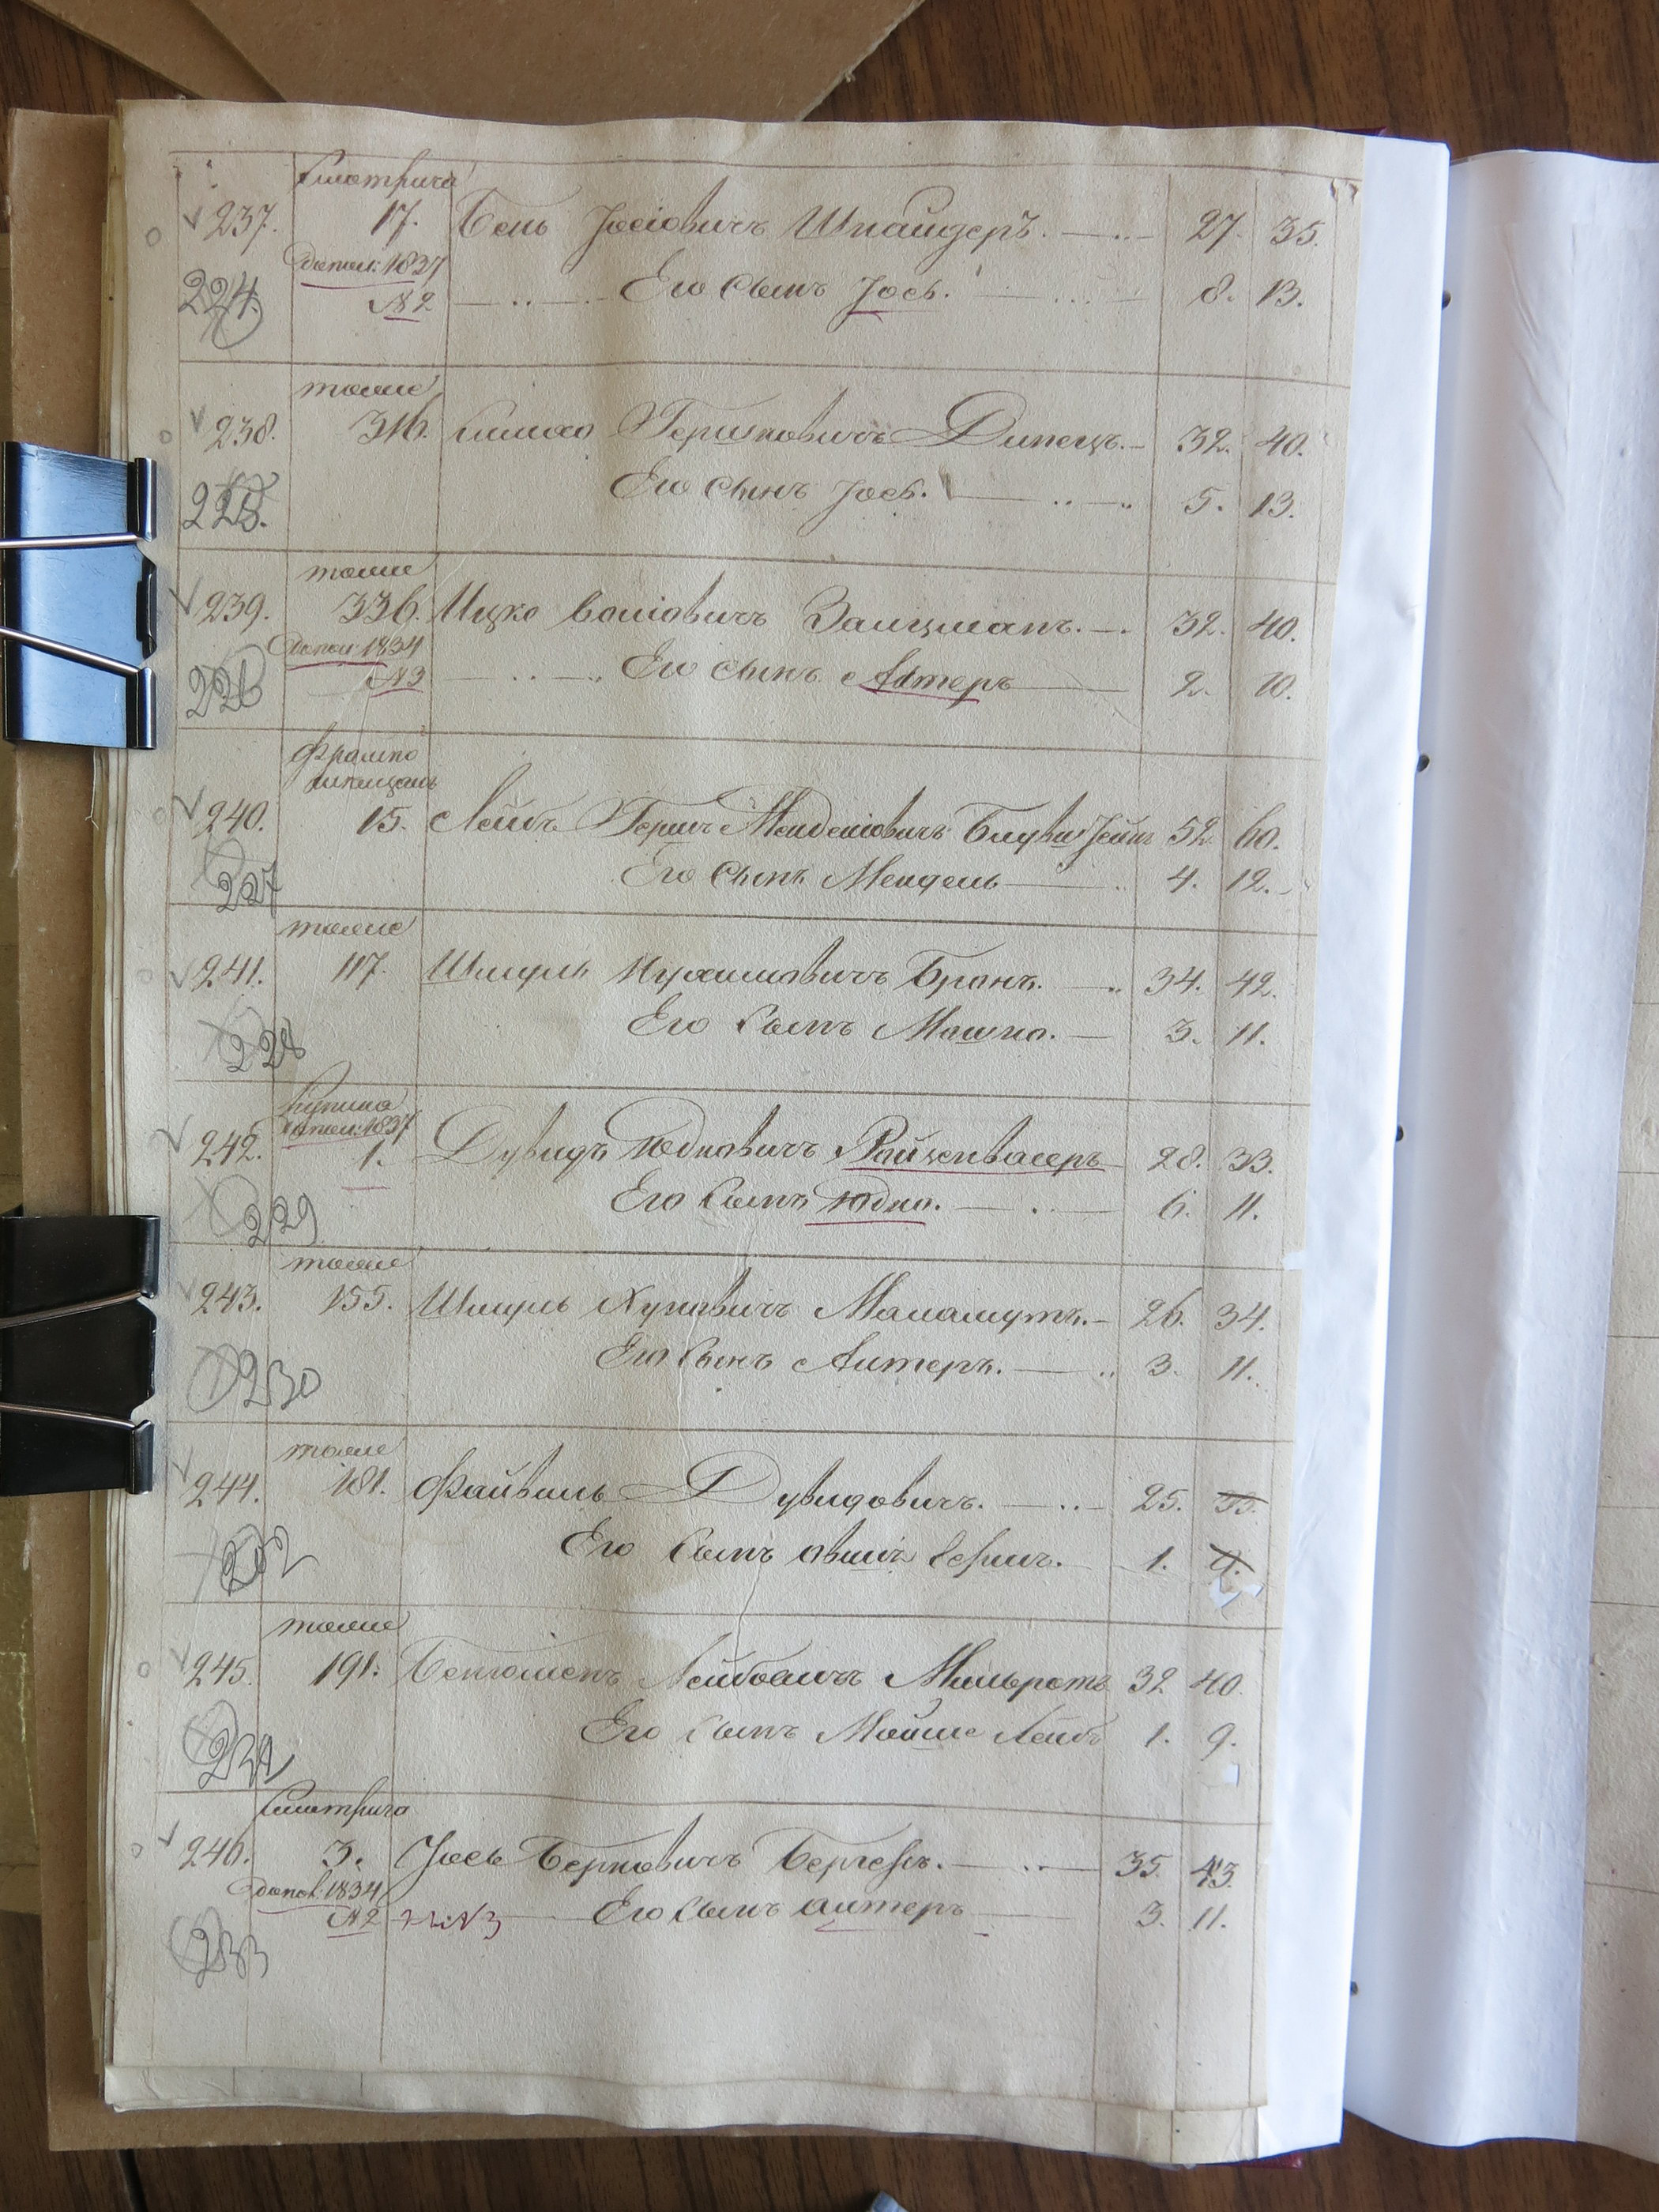 Смотрича
237. 17. Бень Іосіовичъ Шнайдеръ. 27. 35.
допол: 1837
224. №2 Его сынъ Іось. 8. 13.
тоже
238. 316. Симха Гершковичъ Динецъ. 32. 40.
225. Его сынъ Іось. 5. 13.
тоже
239. 336. Ицко Волиовичъ Залцманъ. 32. 40.
допол: 1834
226 №3 Его сынъ Алтеръ 2. 10.
Фрампо
240. 15. Лейбъ Гершъ Менделіовичъ 52 60.
227 Его сынъ Мендель 4. 12.
тоже
241. 117. Шмуль Нухимовичъ Бронъ. 34. 42.
228 Его сынъ Мошко. 3. 11.
Купина
допол: 1837
242. 1. Дувидъ Юдковичъ Райзенвасеръ 28. 33.
229 Его сынъ Юдко. 6. 11.
тоже
243. 155. Шмуль Хуновичъ Маламутъ. 26. 34.
230 Его сынъ Алтеръ. 3. 11.
тоже
244. 181. Файвель Дувидовичъ. 25. 33.
Его сынъ Овшія Гершъ. 1. 9.
тоже
245. 191. Бенюменъ Лейбовичъ Мильротъ 32 40.
Его сынъ Мойше Лейбъ 1. 9.
Смотрича
246. 3. Іось Берковичъ Бергеръ. 35. 43.
допол. 1834
№2 №3 Его сынъ Алтеръ 3. 11.
233